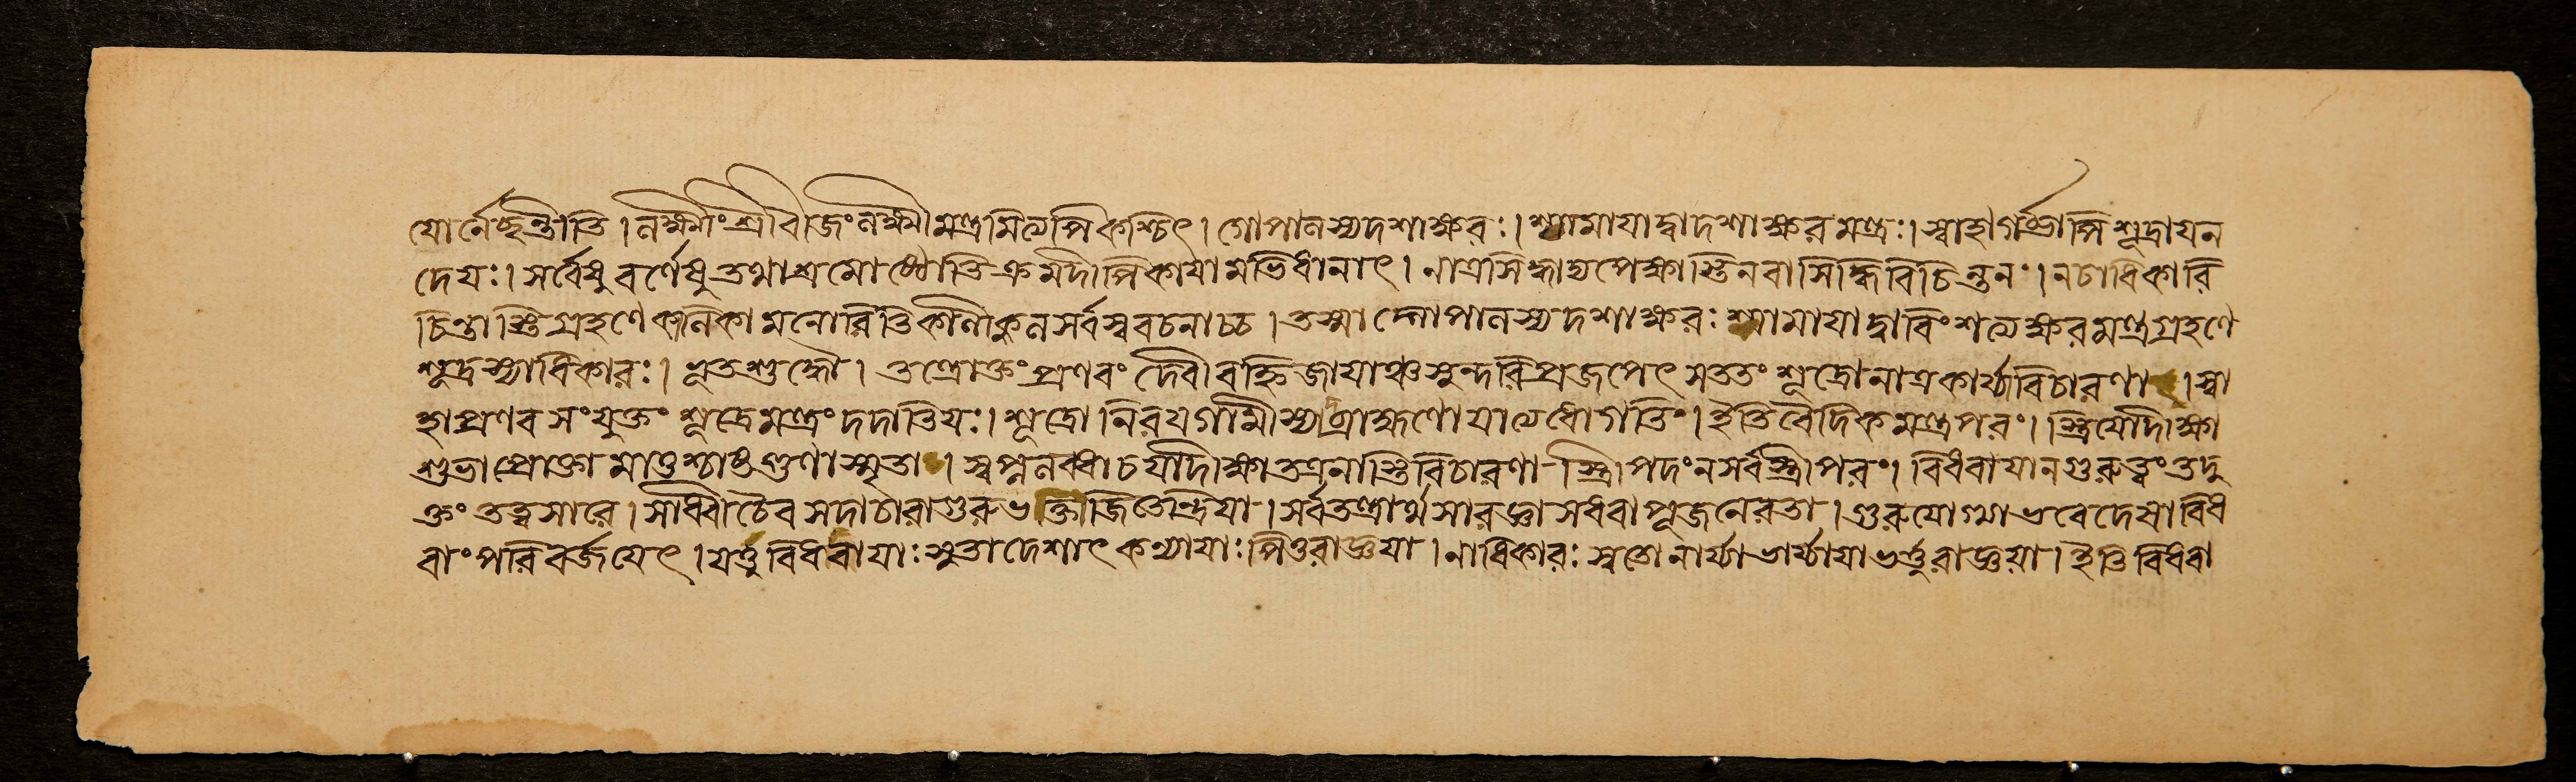 যোর্নেচ্ছন্তীতি । লক্ষ্মীং শ্রীবীজং লক্ষ্মীমন্ত্রমিত্যপি কশ্চিৎ । গোপালস্য দশাক্ষরঃ । শ্যামায়া দ্বাদশাক্ষর মন্ত্রঃ । স্বাহাগর্ভোপি শূদ্রায় ন
দেয়ঃ । সর্বেষু বর্ণেষু তথাশ্রমে ক্রমদীপিকায়ামভিধানাৎ । নাত্র সিদ্ধাদ্যপেক্ষাস্তি ন বা সিদ্ধিবিচিন্তনং । ন চাধিকারি
চিন্তাস্তি গ্রহণে কালিকামনোরিতি কালীকুলসর্বস্ববচনাচ্চ । তস্মাদ্গোপালস্য দশাক্ষরঃ শ্যামায়া দ্বাবিংশত্যক্ষর মন্ত্রগ্রহণে
শূদ্রস্যাধিকারঃ । ভূতশুদ্ধৌ । তন্ত্রোক্তং প্রণবং দেবী বহ্নিজায়াঞ্চ সুন্দরি প্রজপেৎ সততং শূদ্রো নাত্র কার্য্যা বিচারণা । স্বা
হাপ্রণবসংযুক্তং শূদ্রে মন্ত্রং দদাতি যঃ । শূদ্রো নিরয়গামী স্যাদ্ব্রাহ্মণো যাত্যধোগতিং । ইতি বৈদিকমন্ত্রপরং । স্ত্রিয়ো দীক্ষা
শুভা প্রোক্তা মাতুশ্চাষ্টগুণা স্মৃতা । স্বপ্নলব্ধা চ যা দীক্ষা তত্র নাস্তি বিচারণা স্ত্রীপদং ন সর্বস্ত্রীপরং । বিধবায়া ন গুরুত্বং তদু
ক্তং তত্ত্বসারে । সাধ্বী চৈব সদাচারা গুরুভক্তা জিতেন্দ্রিয়া । সর্বতন্ত্রার্থসারজ্ঞা সধবা পূজনে রতা । গুরুযোগ্যা ভবেদেষা বিধ
বাং পরিবর্জয়েৎ । যত্তু বিধবায়াঃ সুতাদেশাৎ কন্যায়াঃ পিতুরাজ্ঞয়া । নাধিকারঃ স্বতো নার্য্যা ভার্য্যায়া ভর্তুরাজ্ঞয়া । ইতি বিধবা